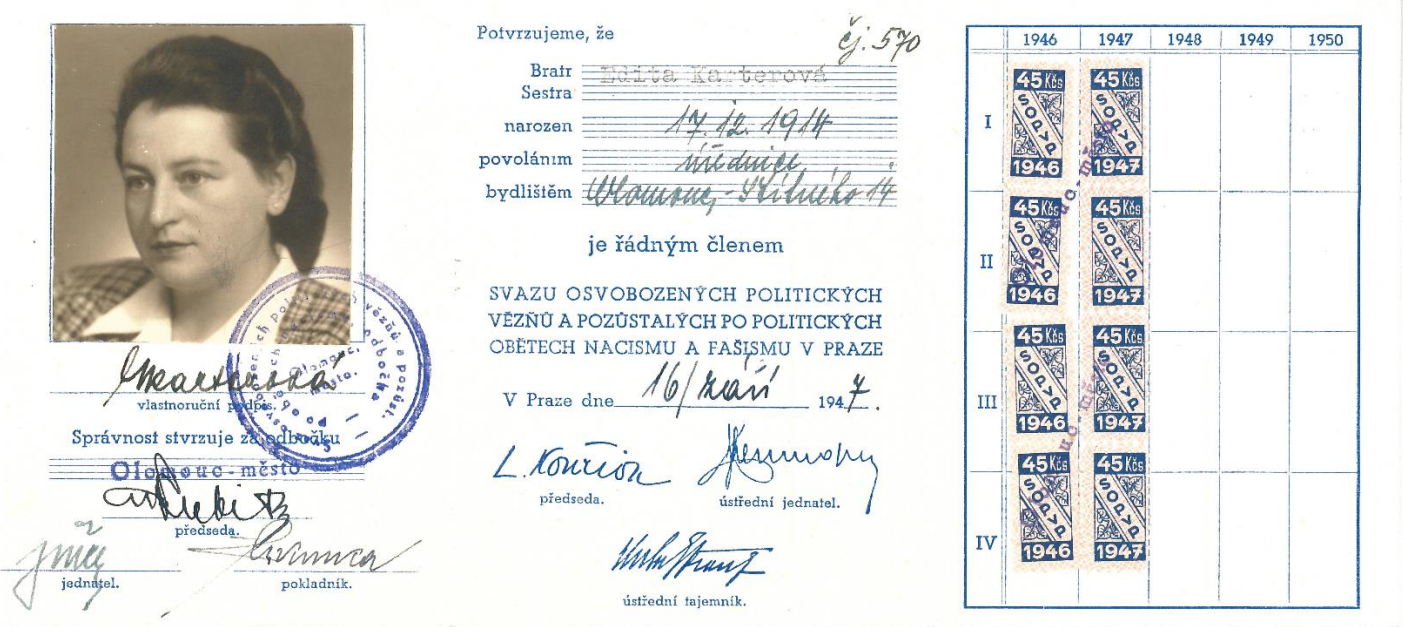 vlastnoruční podpis.
Správnost stvrzuje za odbočku
Olomouc-město
předseda.
jednatel.
pokladník.
Potvrzujeme, že
čj. 570
Bratr
Sestra
Edita Karterová
narozen 17. 12. 1914
povoláním úřednice
bydlištěm Olomouc, - Štítného 14
je řádným členem
SVAZU OSVOBOZENÝCH POLITICKÝCH
VĚZŇŮ A POZŮSTALÝCH PO POLITICKÝCH
OBĚTECH NACISMU A FAŠISMU V PRAZE
V Praze dne 16/září 1947.
předseda.
ústřední jednatel.
ústřední tajemník.
1946 1947 1948 1949 1950
I
45 Kčs 45 Kčs
SOPVP SOPVP
1946 1947
II
45 Kčs 45 Kčs
SOPVP SOPVP
1946 1947
III
45 Kčs 45 Kčs
SOPVP SOPVP
1946 1947
IV
45 Kčs 45 Kčs
SOPVP SOPVP
1946 1947